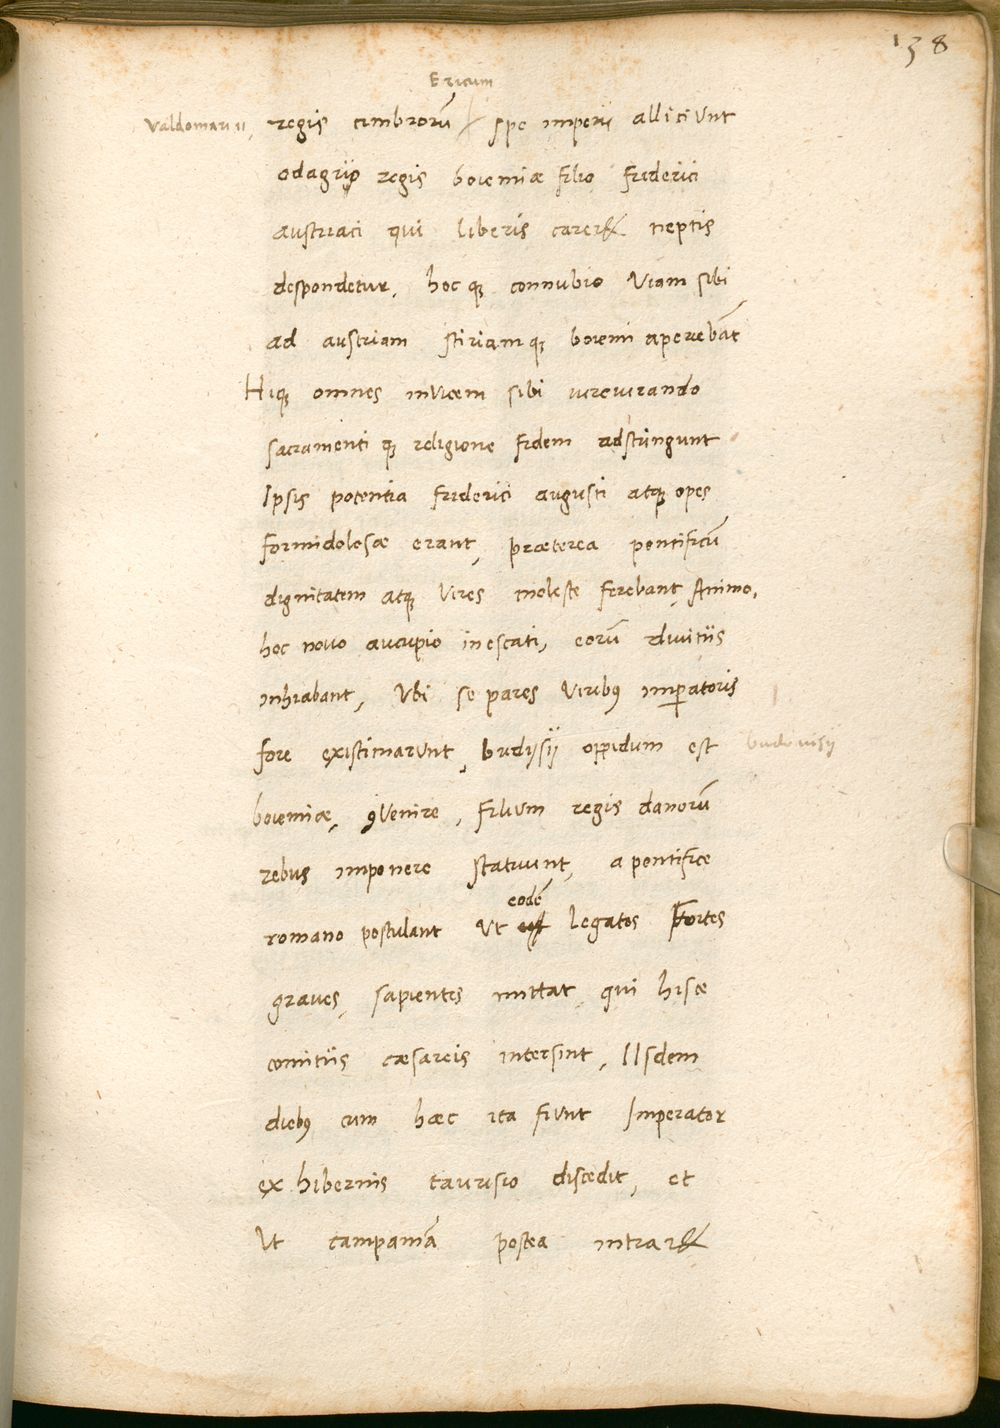 138
Ericum
Valdomari ii, regis cimbrorū / spe imperii alliciunt
odagrijo regis boiemiæ filio Friderici
austriaci qui liberis careret neptis
despondetur, hoc q; connubio Viam sibi
ad austriam stiriamq; boiemi aperiebāt
Hiq; omnes inVicem sibi iureiurando
sacramenti q; religione fidem adstringunt
Ipsis potentia friderici augusti atq; opes
formidolosæ erant, præterea pontificū
dignitatem atq; Vires moleste ferebant, Animo,
hoc nouo aucupio inescati, eorū diuitiis
inhiabant, Vbi se pares Virib9 imperatoris
fore existimarunt, budijsij oppidum est budouisij
boiemiæ, 9Venire, filium regis danorū
rebus imponere statuunt, a pontifice
eodē
romano postulant Ut legatos fortes
graues, sapientes mittat, qui hisce
comitiis cæsareis intersint, IIsdem
dieb9 cum hæc ita fiunt Imperator
ex hibernis taurisio discedit, et
Ut campaniā postea intraret